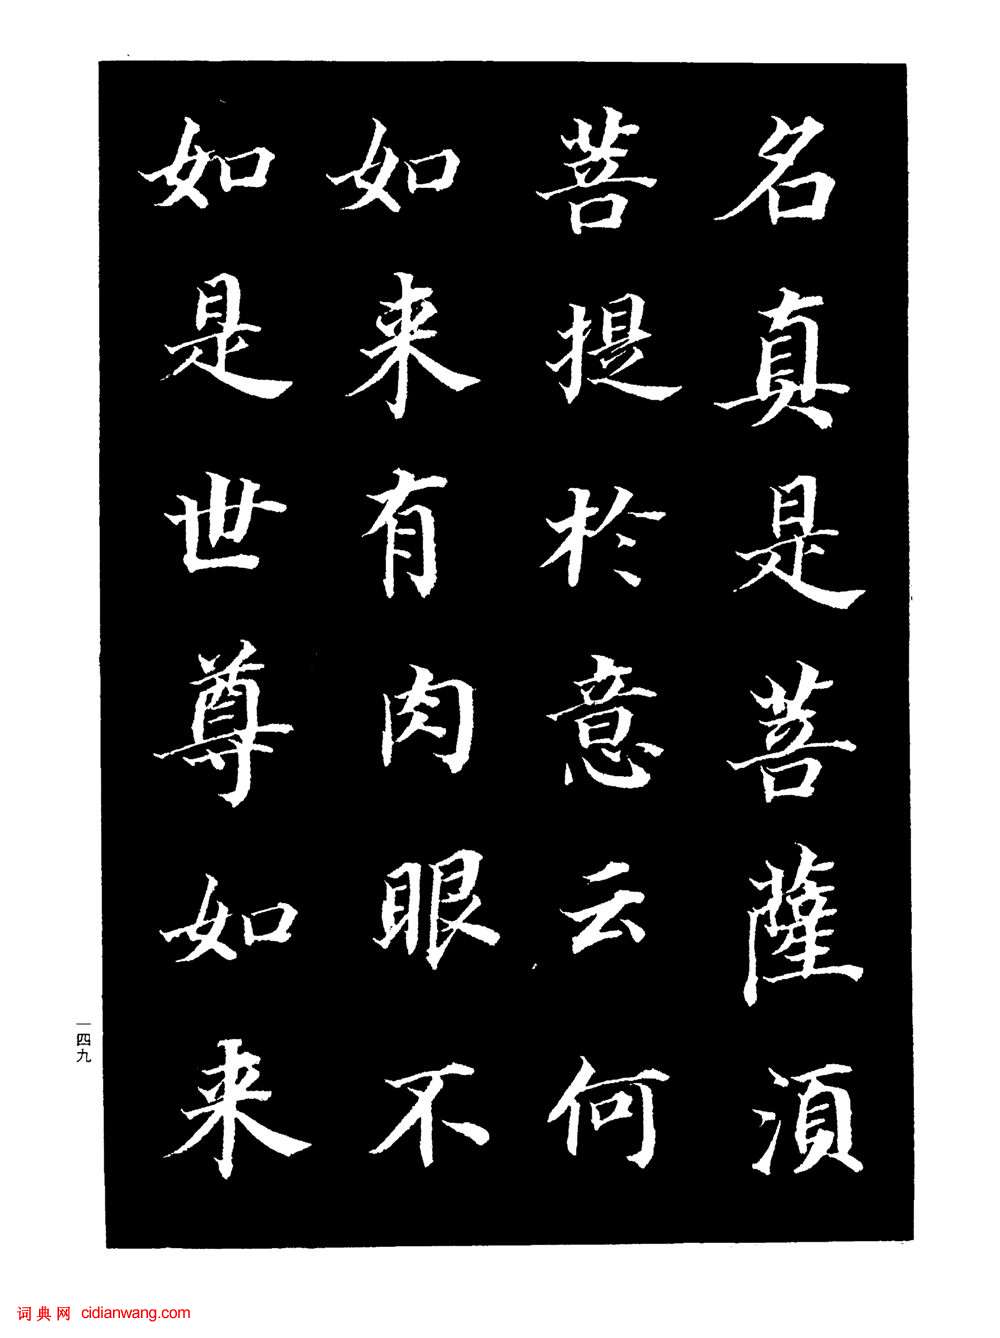 名真是菩薩須
菩提於意云何
如来有肉眼不
如是世尊如来
一四九
词典网 cidianwang.com